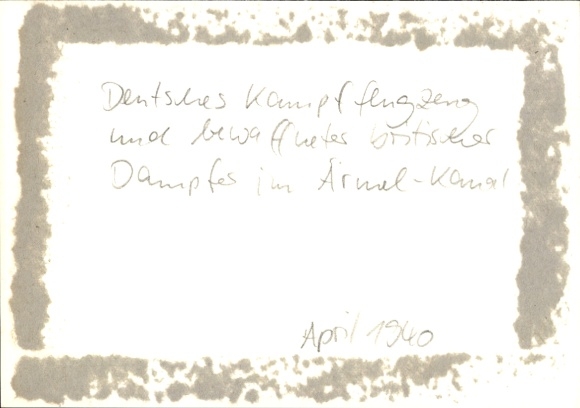 Deutsches Kampfflugzeug
und bewaffneter britischer
Dampfer im Ärmel-Kanal
April 1940